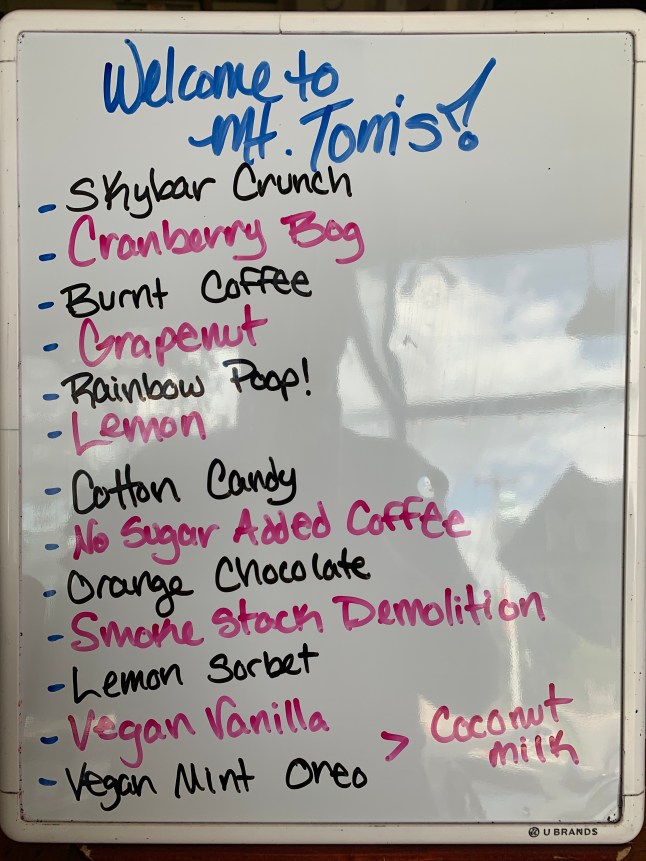 Welcome to
Mt. Tom's!
- Skybar Crunch
- Cranberry Bog
- Burnt Coffee
- Grapenut
- Rainbow Poop!
- Lemon
- Cotton Candy
- No Sugar Added Coffee
- Orange Chocolate
- Smoke Stack Demolition
- Lemon Sorbet
- Vegan Vanilla
- Vegan Mint Oreo
> Coconut
milk
U BRANDS